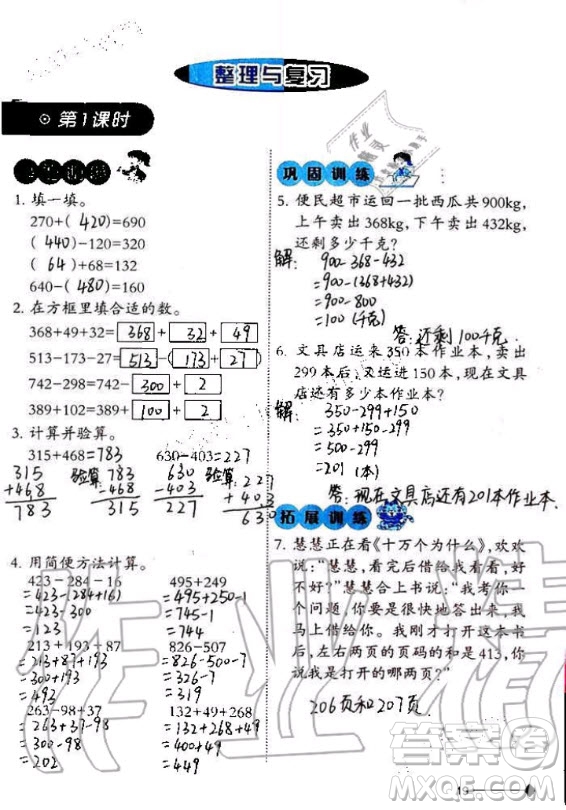 整理与复习
第1课时
1. 填一填。
270+( 420 )=690
( 440 )-120=320
( 64 )+68=132
640-( 480 )=160
2. 在方框里填合适的数。
368+49+32= 368 + 32 + 49
513-173-27= 513 -( 173 + 27 )
742-298=742- 300 + 2
389+102=389+ 100 + 2
3. 计算并验算。
315+468=783 630-403=227
315 验算: 783 630 验算: 227
+468 -468 -403 +403
783 315 227 630
4. 用简便方法计算。
423-284-16
=423-(284+16)
=423-300
=123
495+249
=495+250-1
=745-1
=744
213+193+87
=213+87+193
=300+193
=493
826-507
=826-500-7
=326-7
=319
263-98+37
=263+37-98
=300-98
=202
132+49+268
=132+268+49
=400+49
=449
巩固训练
5. 便民超市运回一批西瓜共900kg,
上午卖出368kg,下午卖出432kg,
还剩多少千克?
解: 900-368-432
=900-(368+432)
=900-800
=100 (千克)
答: 还剩100千克.
6. 文具店运来350本作业本,卖出
299本后,又运进150本,现在文具
店还有多少本作业本?
解: 350-299+150
=350+150-299
=500-299
=201 (本)
答: 现在文具店还有201本作业本.
拓展训练
7. 慧慧正在看《十万个为什么》,欢欢
说:“慧慧,看完后借给我看看,好
不好?”慧慧合上书说:“我问你一
个问题,你要是很快地答出来,我
马上借给你。我刚才打开这本书
后,左右两页的页码的和是413,你
说我是打开的哪两页?”
206页和207页.
作业精灵
答案圈
MXQE.COM
19